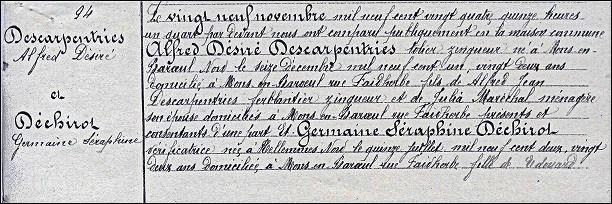 94
Descarpentries
Alfred Désiré
et
Déchirot
Germaine Séraphine
Le vingt neuf novembre mil neuf cent vingt quatre quinze heures
un quart par devant nous ont comparu publiquement en la maison commune
Alfred Désiré Descarpentries tolier zingueur né à Mons en
Barœul Nord le seize Décembre mil neuf cent un, vingt deux ans
domicilié à Mons en Barœul rue Faidherbe fils de Alfred Jean
Descarpentries ferblantier zingueur et de Julia Maréchal ménagère
son épouse domiciliés à Mons en Barœul rue Faidherbe présents et
consentants d'une part Et Germaine Séraphine Déchirot
vérificatrice née à Hellemmes Nord le quinze juillet mil neuf cent deux, vingt
deux ans domiciliée à Mons en Barœul rue Faidherbe fille de Edouard